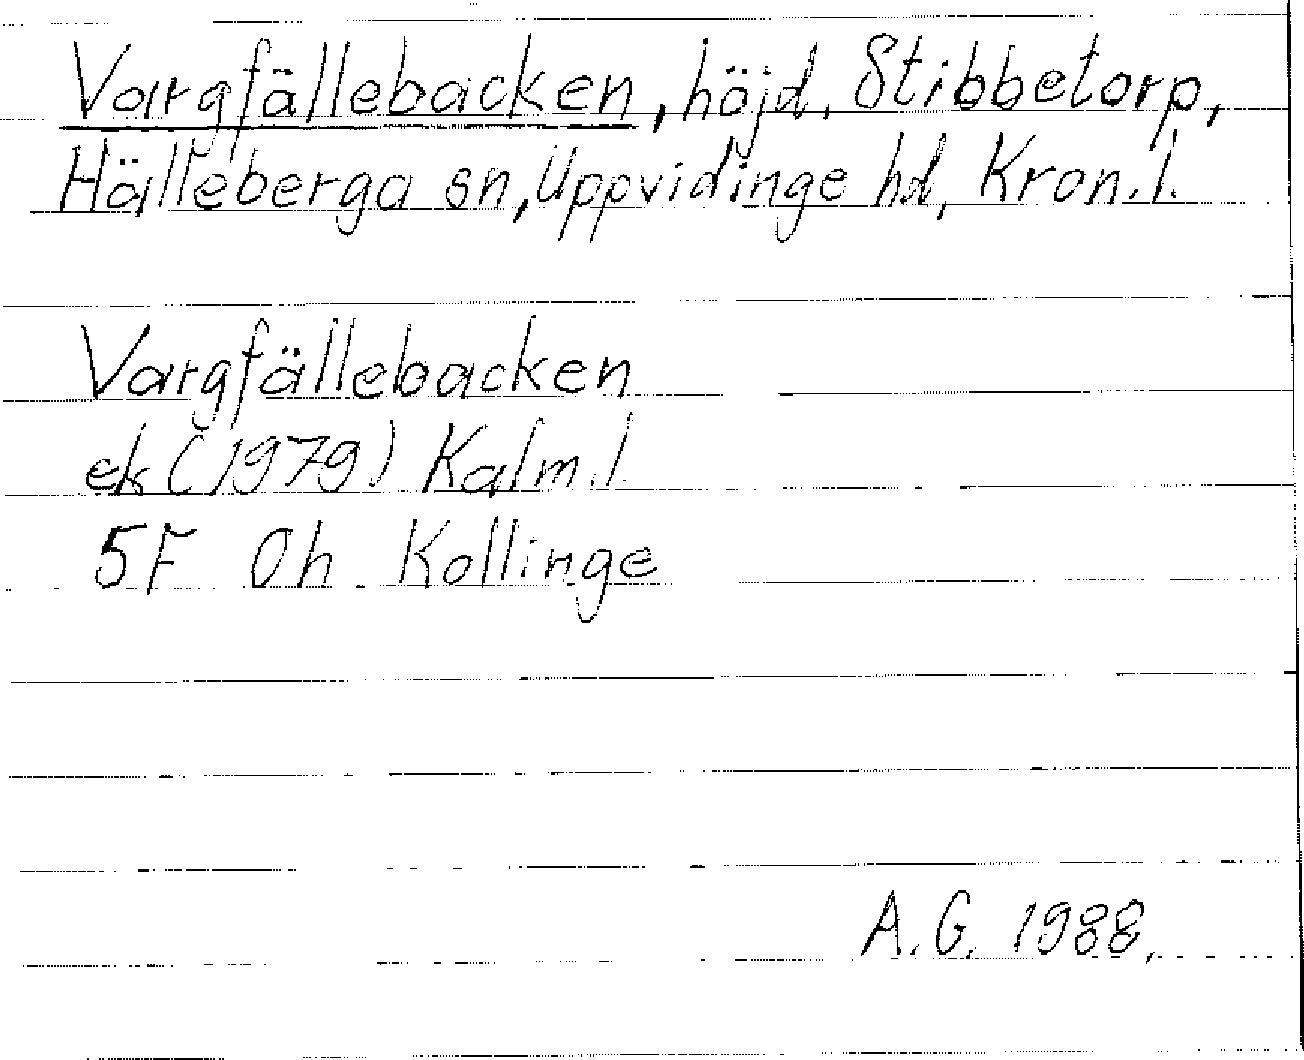 Vargfällebacken, höjd, Stibbetorp,
Hälleberga sn, Uppvidinge hd, Kron.l.
Vargfällebacken
ek (1979) Kalm.l.
5F 0h Kollinge
A.G. 1988.